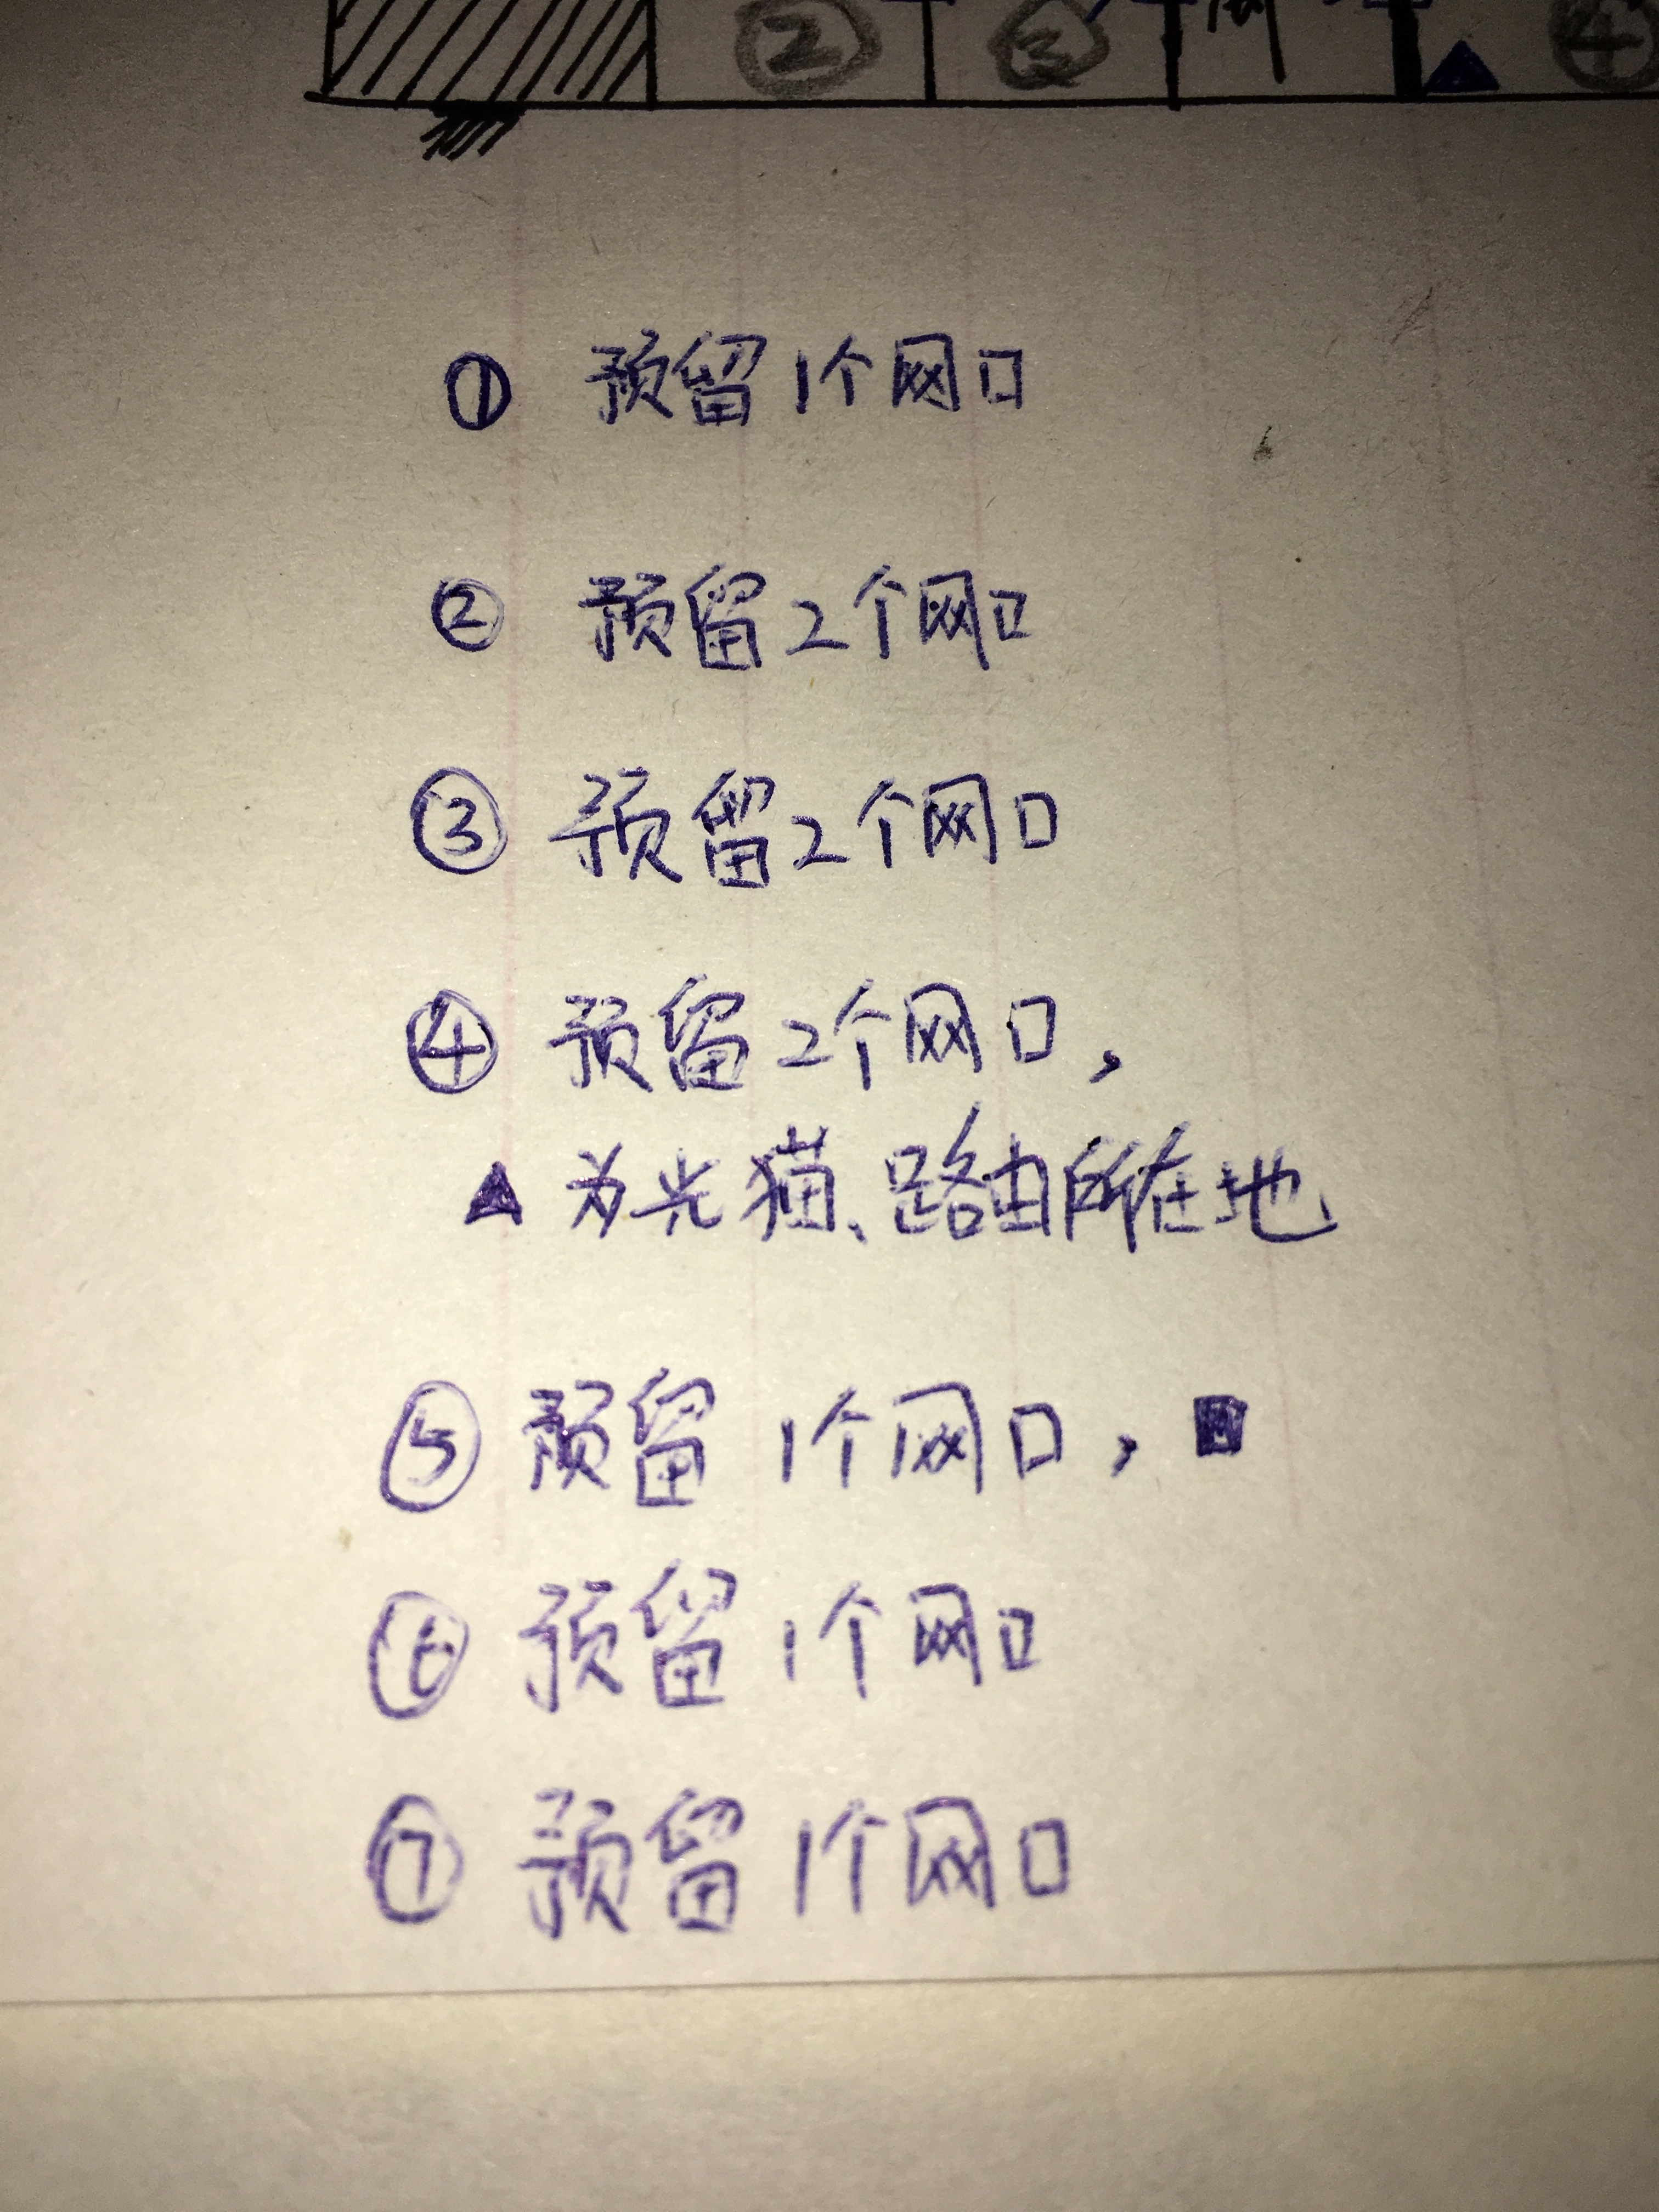 ② ③ ④
① 预留1个网口
② 预留2个网口
③ 预留2个网口
④ 预留2个网口，
▲ 为光猫、路由所在地
⑤ 预留1个网口，■
⑥ 预留1个网口
⑦ 预留1个网口